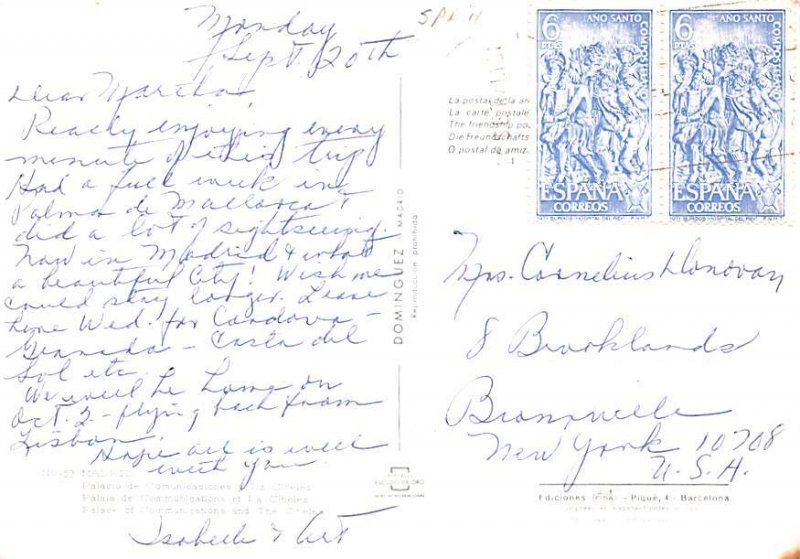 Monday
Sept 20th
SPAIN
Dear Martha,
Really enjoying every
minute of this trip
Had a full week in
Palma de Mallorca &
did a lot of sightseeing.
Now in Madrid & what
a beautiful City! Wish we
could stay longer. Leave
here Wed. for Cordova -
Granada - Costa del
Sol etc.
We will be home on
Oct. 2 - flying back from
Lisbon.
Hope all is well
with you.
Isabelle & Art
No. 53 MADRID
Palacio de Comunicaciones y La Cibeles
Palais de Communications et La Cibeles
Palace of Communications and The Cibeles
DOMINGUEZ MADRID
Reproducción prohibida
La postal de la
La carte postale
The friendship
Die Freundschafts
O postal da amiz
6 PTAS AÑO SANTO COMPOSTELANO
ESPAÑA
CORREOS
6 PTAS AÑO SANTO COMPOSTELANO
ESPAÑA
CORREOS
Mrs. Cornelius Donovan
8 Brooklands
Bronxville
New York 10708
U.S.A.
Ediciones - Piqué, 4 - Barcelona